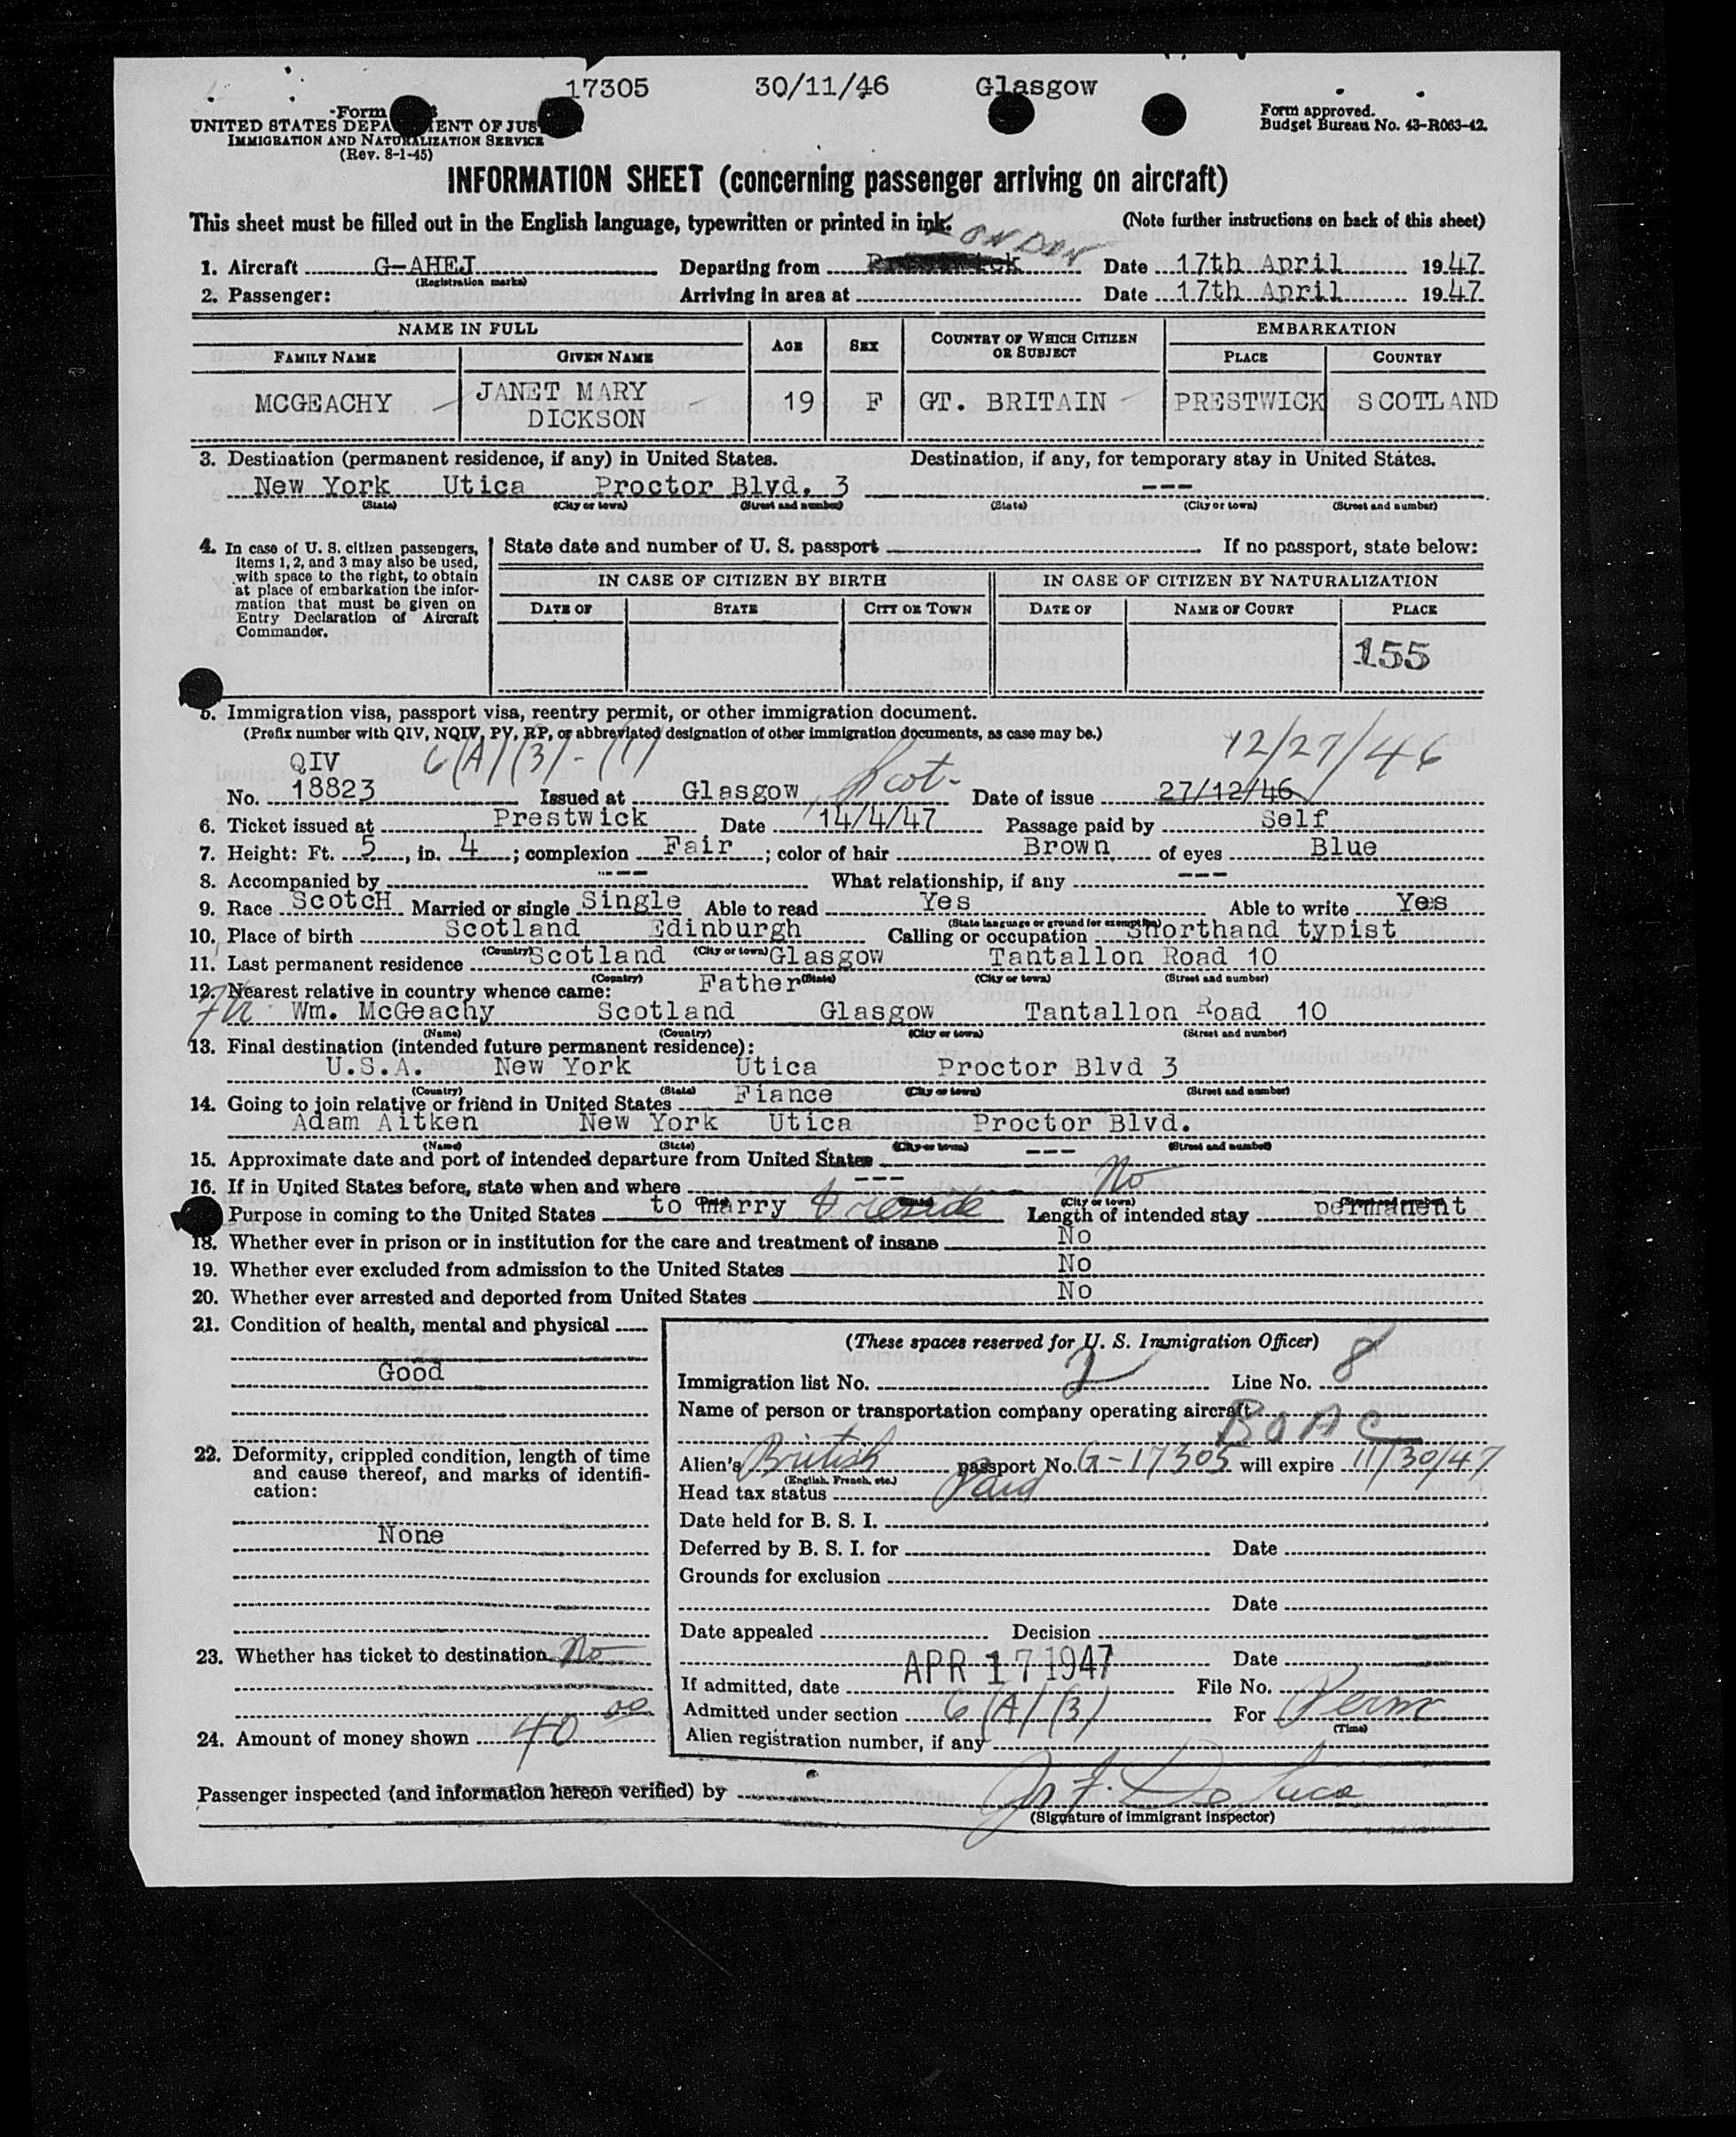 17305 30/11/46 Glasgow
Form
UNITED STATES DEPARTMENT OF JUS
IMMIGRATION AND NATURALIZATION SERVICE
(Rev. 8-1-45)
Form approved.
Budget Bureau No. 43-R063-42.
INFORMATION SHEET (concerning passenger arriving on aircraft)
This sheet must be filled out in the English language, typewritten or printed in ink. (Note further instructions on back of this sheet)
LONDON
1. Aircraft G-AHEJ Departing from Prestwick Date 17th April 1947
(Registration marks)
2. Passenger: Arriving in area at Date 17th April 1947
NAME IN FULL AGE SEX COUNTRY OF WHICH CITIZEN OR SUBJECT EMBARKATION
FAMILY NAME GIVEN NAME PLACE COUNTRY
MCGEACHY JANET MARY DICKSON 19 F GT. BRITAIN PRESTWICK SCOTLAND
3. Destination (permanent residence, if any) in United States. Destination, if any, for temporary stay in United States.
New York Utica Proctor Blvd. 3 ---
(State) (City or town) (Street and number) (State) (City or town) (Street and number)
4. In case of U. S. citizen passengers, items 1, 2, and 3 may also be used, with space to the right, to obtain at place of embarkation the information that must be given on Entry Declaration of Aircraft Commander.
State date and number of U. S. passport If no passport, state below:
IN CASE OF CITIZEN BY BIRTH IN CASE OF CITIZEN BY NATURALIZATION
DATE OF STATE CITY OR TOWN DATE OF NAME OF COURT PLACE
155
5. Immigration visa, passport visa, reentry permit, or other immigration document.
(Prefix number with QIV, NQIV, PV, RP, or abbreviated designation of other immigration documents, as case may be.)
QIV 6(A)(3)-(1) 12/27/46
No. 18823 Issued at Glasgow, Scot- Date of issue 27/12/46
6. Ticket issued at Prestwick Date 14/4/47 Passage paid by Self
7. Height: Ft. 5, in. 4; complexion Fair; color of hair Brown of eyes Blue
8. Accompanied by --- What relationship, if any ---
9. Race ScotcH Married or single Single Able to read Yes Able to write Yes
(State language or ground for exemption)
10. Place of birth Scotland Edinburgh Calling or occupation Shorthand typist
(Country) (City or town)
11. Last permanent residence Scotland Glasgow Tantallon Road 10
(Country) (State) (City or town) (Street and number)
12. Nearest relative in country whence came: Father
Fth Wm. McGeachy Scotland Glasgow Tantallon Road 10
(Name) (Country) (City or town) (Street and number)
13. Final destination (intended future permanent residence):
U.S.A. New York Utica Proctor Blvd 3
(Country) (State) (City or town) (Street and number)
14. Going to join relative or friend in United States Fiance
Adam Aitken New York Utica Proctor Blvd.
(Name) (State) (City or town) (Street and number)
15. Approximate date and port of intended departure from United States ---
16. If in United States before, state when and where --- No
(Date) (State) (City or town) (Street and number)
Purpose in coming to the United States to marry & reside Length of intended stay permanent
18. Whether ever in prison or in institution for the care and treatment of insane No
19. Whether ever excluded from admission to the United States No
20. Whether ever arrested and deported from United States No
21. Condition of health, mental and physical
Good
22. Deformity, crippled condition, length of time and cause thereof, and marks of identification:
None
23. Whether has ticket to destination No
24. Amount of money shown 40 00
(These spaces reserved for U. S. Immigration Officer)
Immigration list No. 2 Line No. 8
Name of person or transportation company operating aircraft
BOAC
Alien's British passport No. G-17305 will expire 11/30/47
(English, French, etc.)
Head tax status Paid
Date held for B. S. I.
Deferred by B. S. I. for Date
Grounds for exclusion
Date
Date appealed Decision
Date
If admitted, date APR 17 1947 File No.
Admitted under section 6(A)(3) For Perm
(Time)
Alien registration number, if any
Passenger inspected (and information hereon verified) by
(Signature of immigrant inspector)